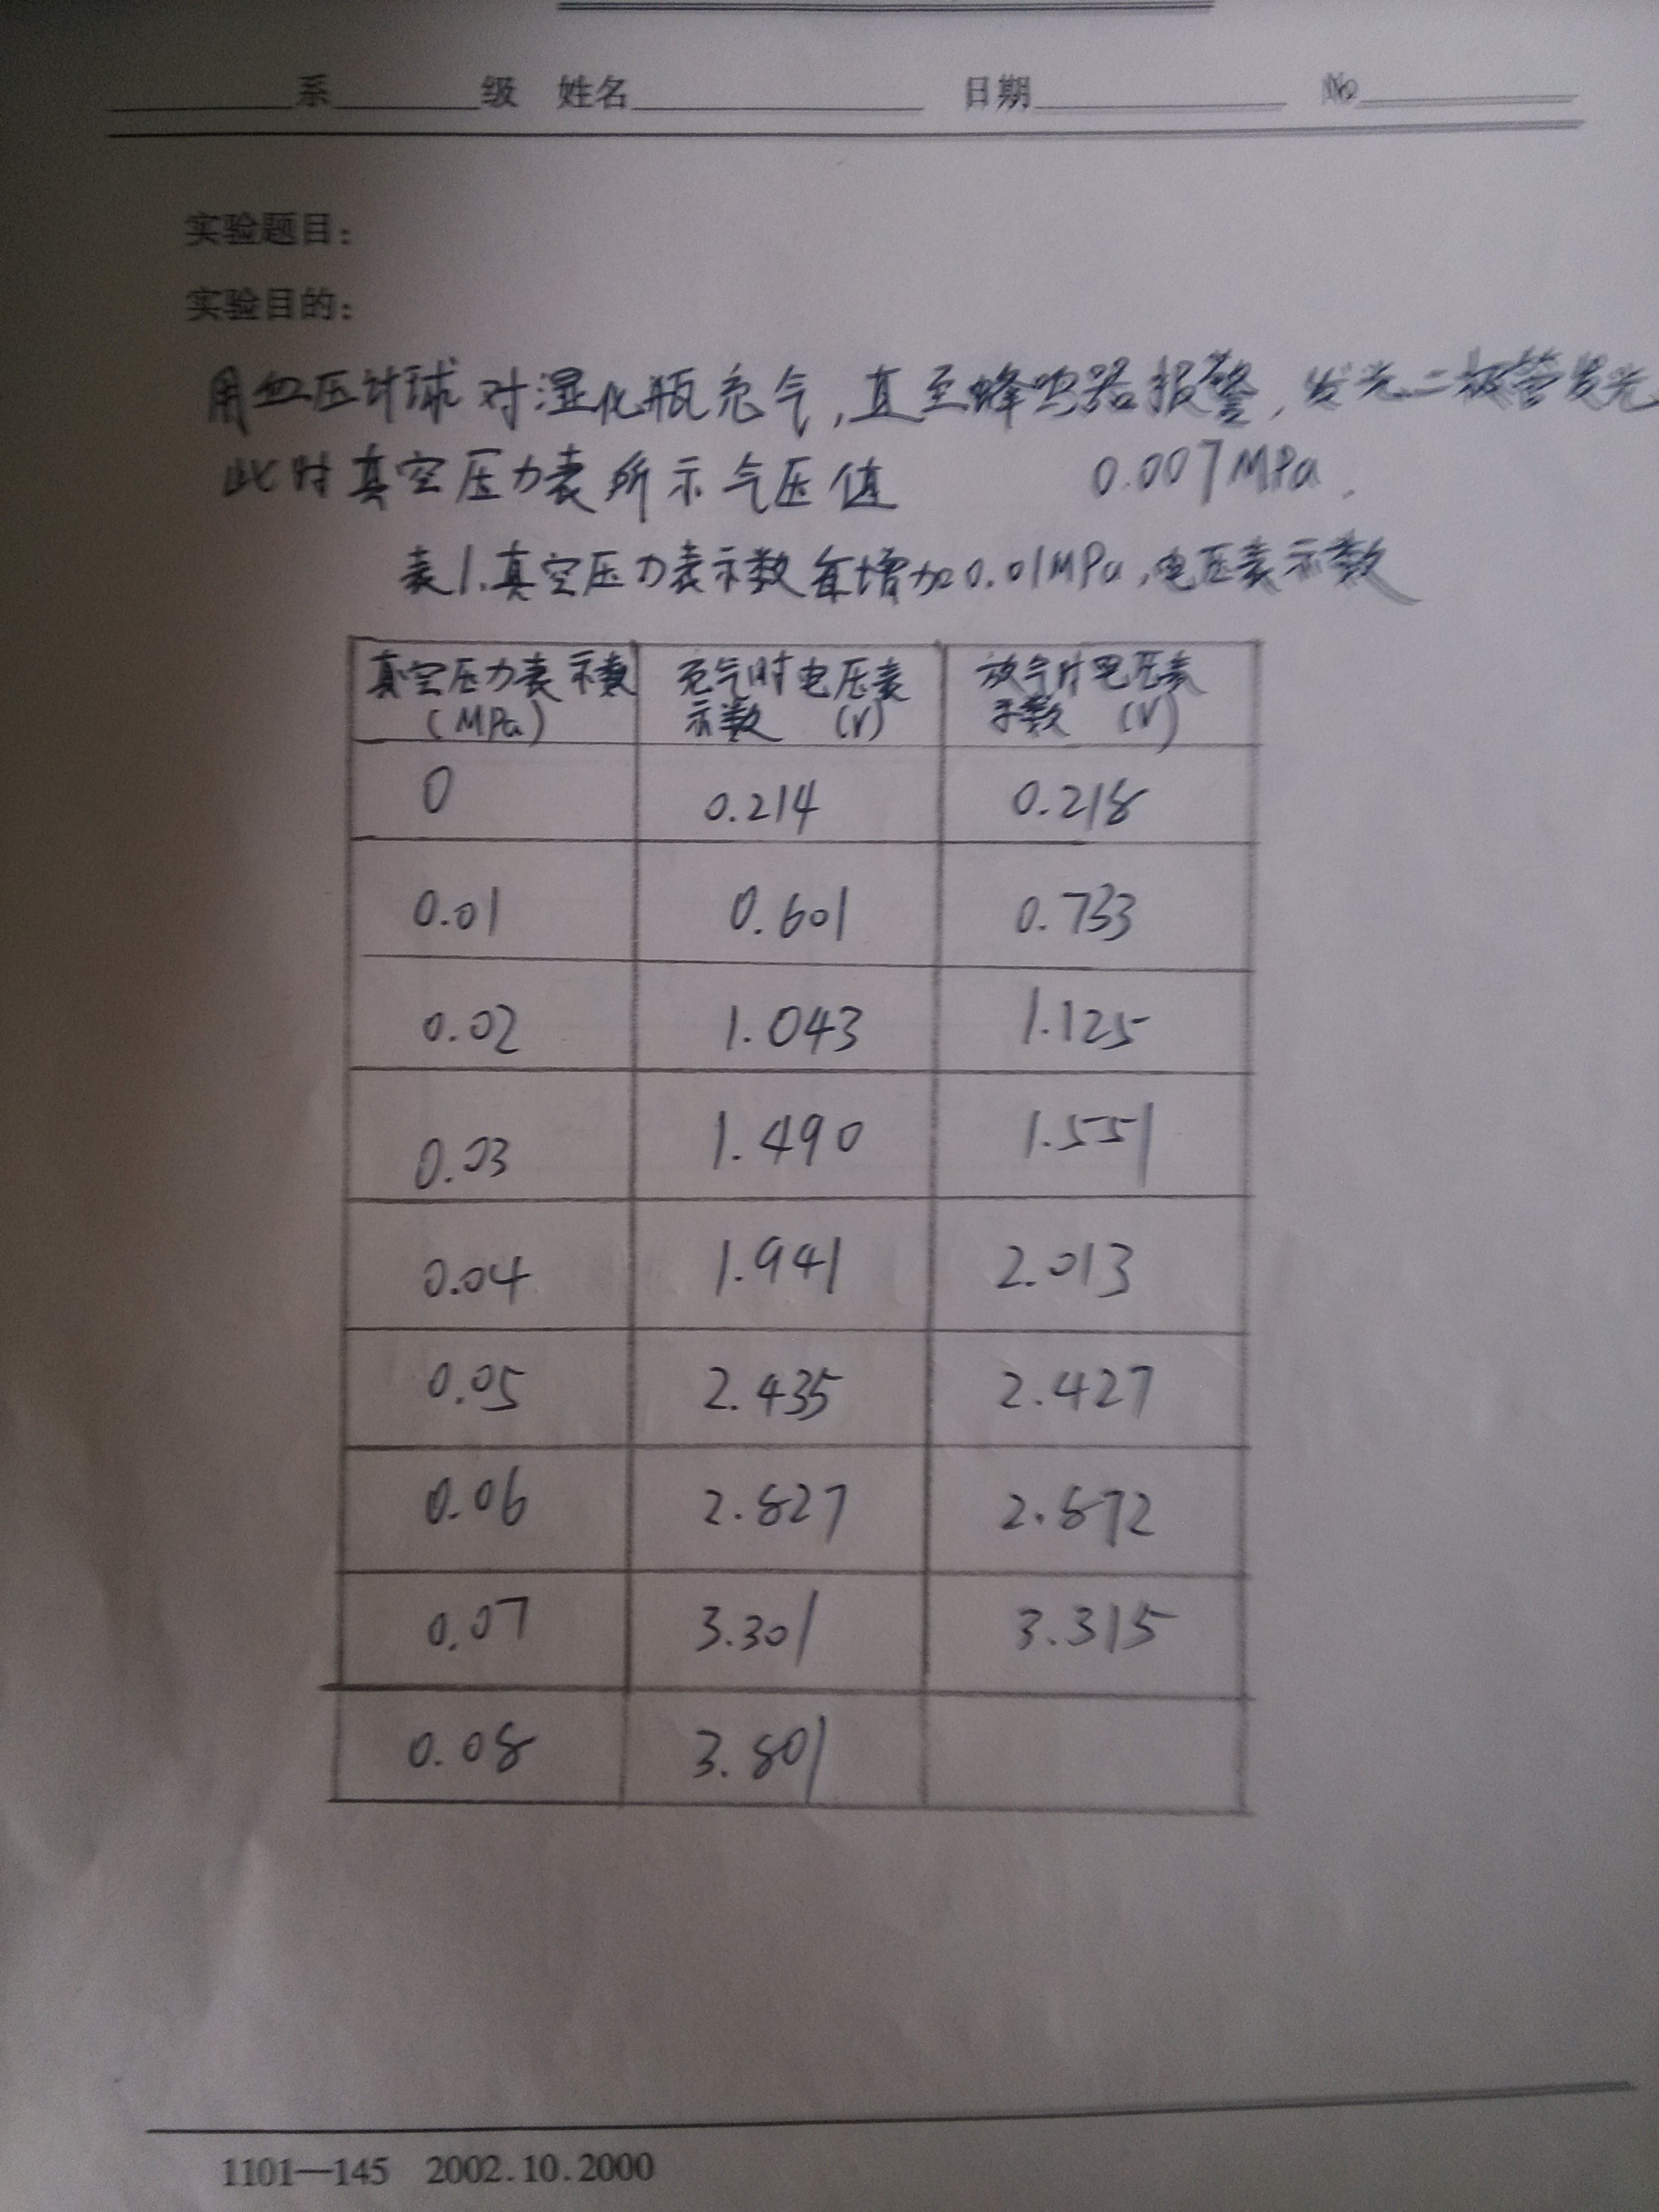 系 级 姓名 日期 №
实验题目：
实验目的：
用血压计球对湿化瓶充气，直至蜂鸣器报警，发光二极管发光
此时真空压力表所示气压值 0.007MPa.
表1.真空压力表示数每增加0.01MPa,电压表示数
真空压力表示数 充气时电压表 放气时电压表
(MPa) 示数 (V) 示数 (V)
0 0.214 0.218
0.01 0.601 0.733
0.02 1.043 1.125
0.03 1.490 1.551
0.04 1.941 2.013
0.05 2.435 2.427
0.06 2.827 2.872
0.07 3.301 3.315
0.08 3.801
1101—145 2002.10.2000